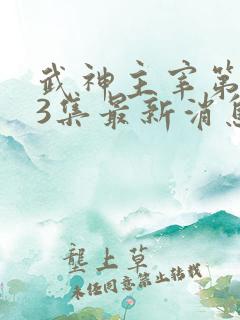 武神主宰第
3集最新消息
壟上草
未经同意禁止转载